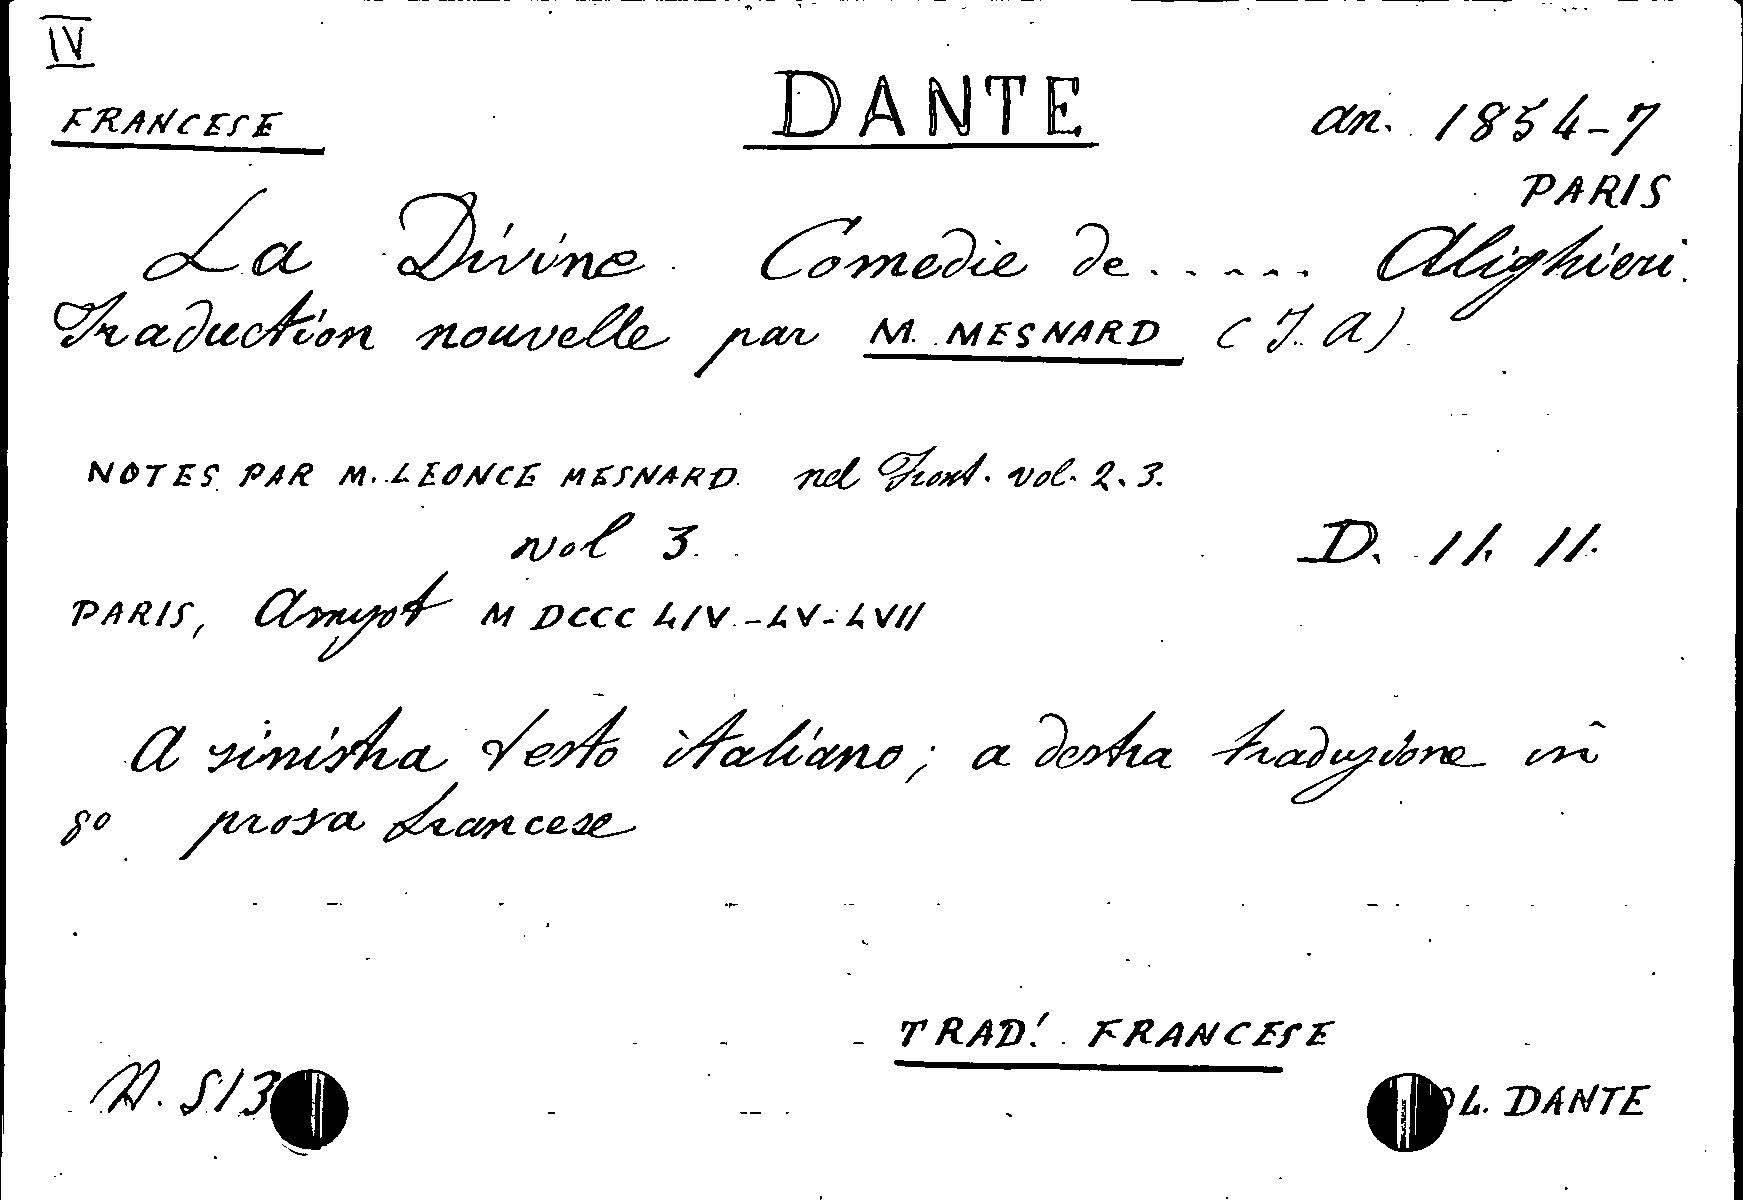 IV
FRANCESE DANTE an. 1854-7
PARIS
La Divine Comedie de ..... Alighieri.
Traduction nouvelle par M. MESNARD (J. A)
NOTES PAR M. LEONCE MESNARD nel Front. vol. 2. 3.
vol 3. D. 11. 11.
PARIS, Amyot M DCCC LIV-LV-LVII
A sinistra testo italiano; a destra traduzione in
8º prosa francese
TRAD! FRANCESE
N. 513
OL. DANTE